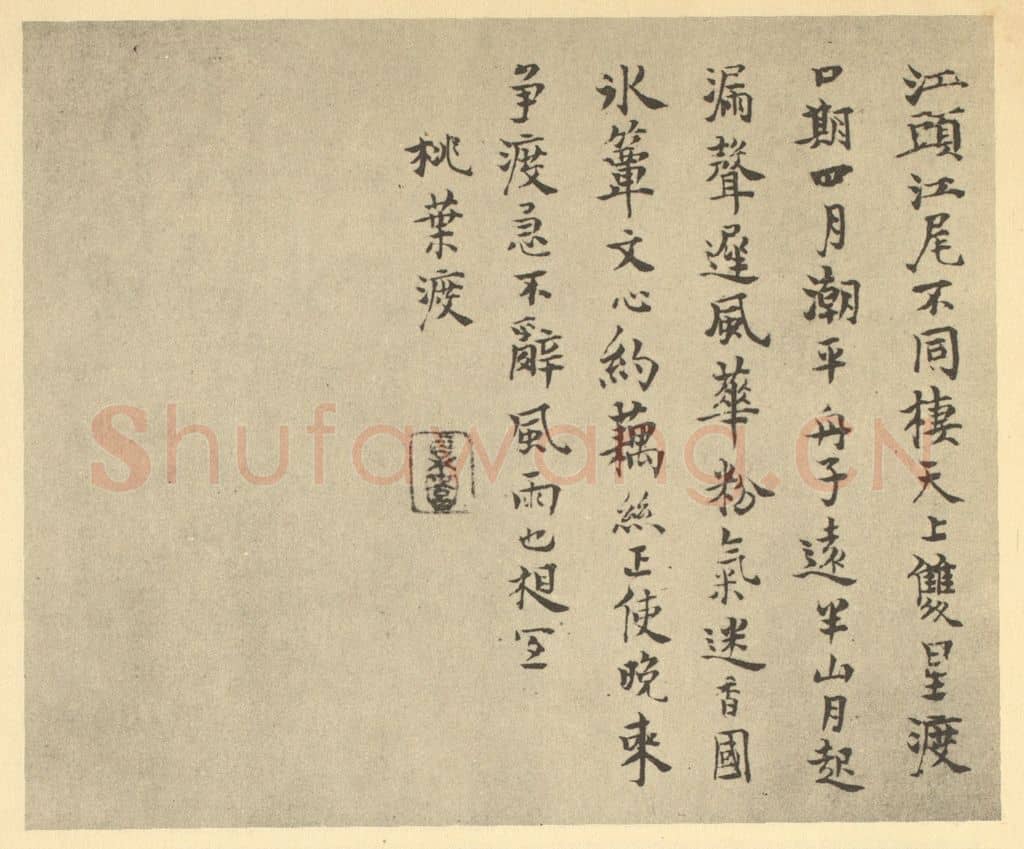 江頭江尾不同棲天上雙星渡
口期四月潮平舟子遠半山月起
漏聲遲風華粉氣迷香國
氷簟文心約藕絲正使晚來
争渡急不辭風雨也相宜
桃葉渡
Shufawang.CN